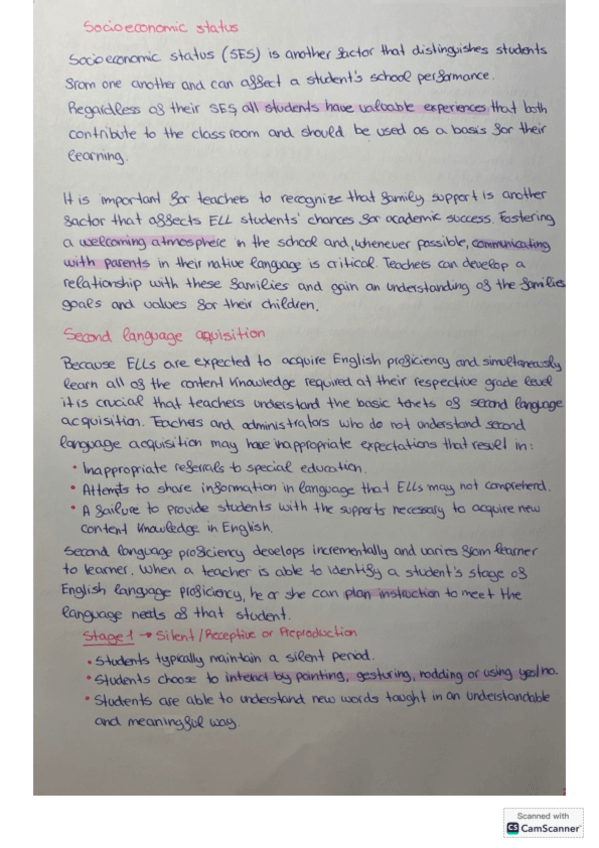 Socioeconomic status
Socioeconomic status (SES) is another factor that distinguishes students
from one another and can affect a student's school performance.
Regardless of their SES, all students have valuable experiences that both
contribute to the classroom and should be used as a basis for their
learning.
It is important for teachers to recognize that family support is another
factor that affects ELL students' chances for academic success. Fostering
a welcoming atmosphere in the school and, whenever possible, communicating
with parents in their native language is critical. Teachers can develop a
relationship with these families and gain an understanding of the families
goals and values for their children.
Second language aquisition
Because ELLs are expected to acquire English proficiency and simultaneously
learn all of the content knowledge required at their respective grade level
it is crucial that teachers understand the basic tenets of second language
acquisition. Teachers and administrators who do not understand second
language acquisition may have inappropriate expectations that result in:
• Inappropriate referrals to special education.
• Attempts to share information in language that ELLs may not comprehend.
• A failure to provide students with the supports necessary to acquire new
content knowledge in English.
Second language proficiency develops incrementally and varies from learner
to learner. When a teacher is able to identify a student's stage of
English language proficiency, he or she can plan instruction to meet the
language needs of that student.
Stage 1 → Silent/Receptive or Preproduction
• Students typically maintain a silent period.
• Students choose to interact by pointing, gesturing, nodding or using yes/no.
• Students are able to understand new words taught in an understandable
and meaningful way.
Scanned with
CS CamScanner